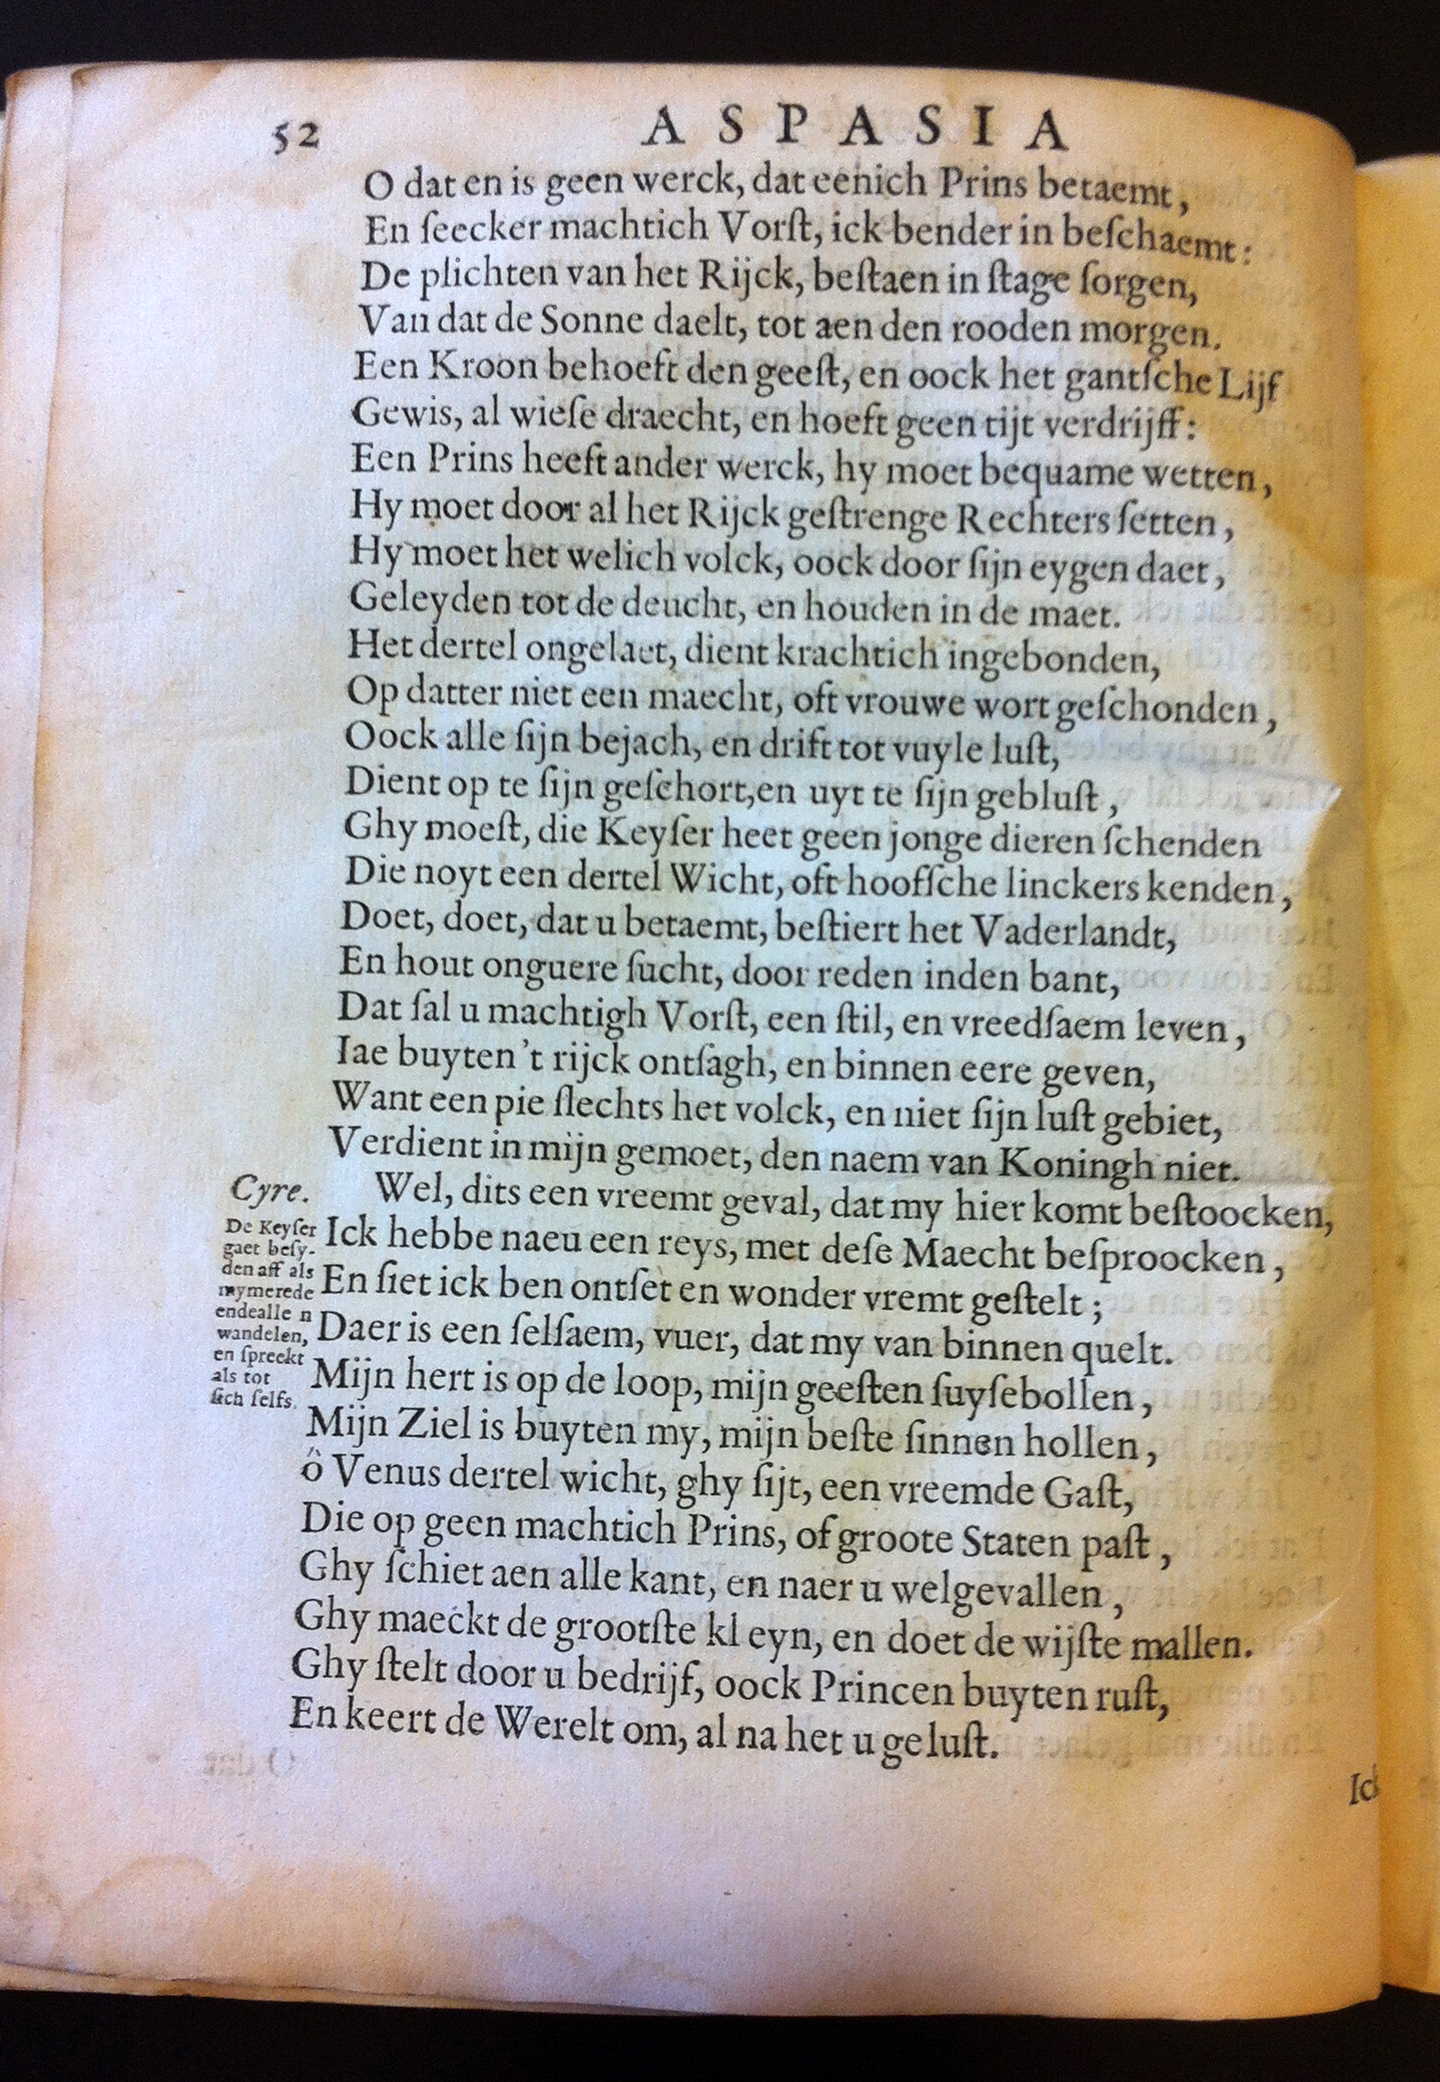 52 ASPASIA
O dat en is geen werck, dat eenich Prins betaemt,
En ſeecker machtich Vorſt, ick bender in beſchaemt:
De plichten van het Rijck, beſtaen in ſtage ſorgen,
Van dat de Sonne daelt, tot aen den rooden morgen.
Een Kroon behoeft den geeſt, en oock het gantſche Lijf
Gewis, al wieſe draecht, en hoeft geen tijt verdrijff:
Een Prins heeft ander werck, hy moet bequame wetten,
Hy moet door al het Rijck geſtrenge Rechters ſetten,
Hy moet het welich volck, oock door ſijn eygen daet,
Geleyden tot de deucht, en houden in de maet.
Het dertel ongelaet, dient krachtich ingebonden,
Op datter niet een maecht, oft vrouwe wort geſchonden,
Oock alle ſijn bejach, en drift tot vuyle luſt,
Dient op te ſijn geſchort, en uyt te ſijn gebluſt,
Ghy moeſt, die Keyſer heet geen jonge dieren ſchenden
Die noyt een dertel Wicht, oft hoofſche linckers kenden,
Doet, doet, dat u betaemt, beſtiert het Vaderlandt,
En hout onguere ſucht, door reden inden bant,
Dat ſal u machtigh Vorſt, een ſtil, en vreedſaem leven,
Iae buyten 't rijck ontſagh, en binnen eere geven,
Want een pie ſlechts het volck, en niet ſijn luſt gebiet,
Verdient in mijn gemoet, den naem van Koningh niet.
Cyre. Wel, dits een vreemt geval, dat my hier komt beſtoocken,
De Keyſer
gaet beſy-
den aff als
mymerede
ende alle n
wandelen,
en ſpreekt
als tot
ſich ſelfs.
Ick hebbe naeu een reys, met deſe Maecht beſproocken,
En ſiet ick ben ontſet en wonder vremt geſtelt;
Daer is een ſelſaem, vuer, dat my van binnen quelt.
Mijn hert is op de loop, mijn geeſten ſuyſebollen,
Mijn Ziel is buyten my, mijn beſte ſinnen hollen,
ô Venus dertel wicht, ghy ſijt, een vreemde Gaſt,
Die op geen machtich Prins, of groote Staten paſt,
Ghy ſchiet aen alle kant, en naer u welgevallen,
Ghy maeckt de grootſte kleyn, en doet de wijſte mallen.
Ghy ſtelt door u bedrijf, oock Princen buyten ruſt,
En keert de Werelt om, al na het u geluſt.
Ick